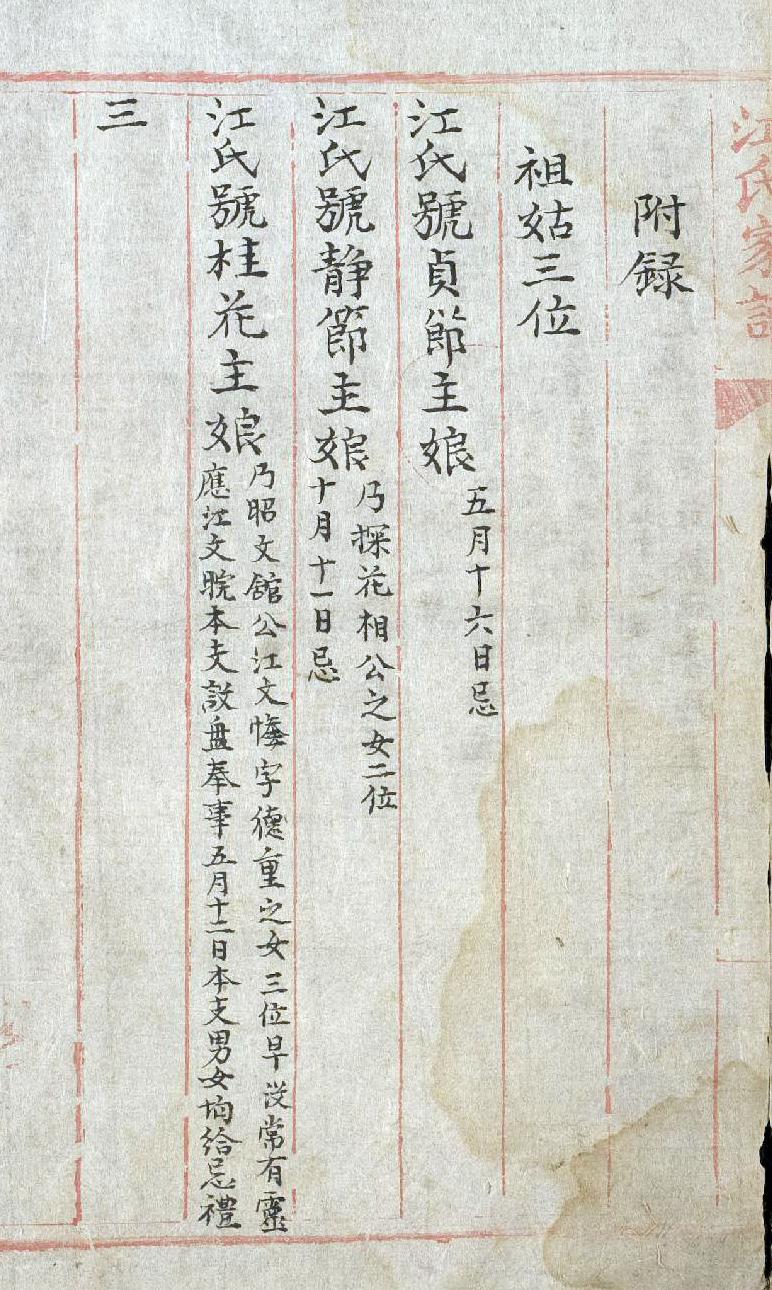 江氏家
附録
祖姑三位
江氏號貞節主娘
五月十六日忌
江氏號静節主娘
乃探花相公之女二位
十月十一日忌
江氏號桂花主娘
乃昭文館公江文悔字德重之女三位早没常有靈
應江文晥本支設盘奉事五月十二日本支男女均給忌禮
三